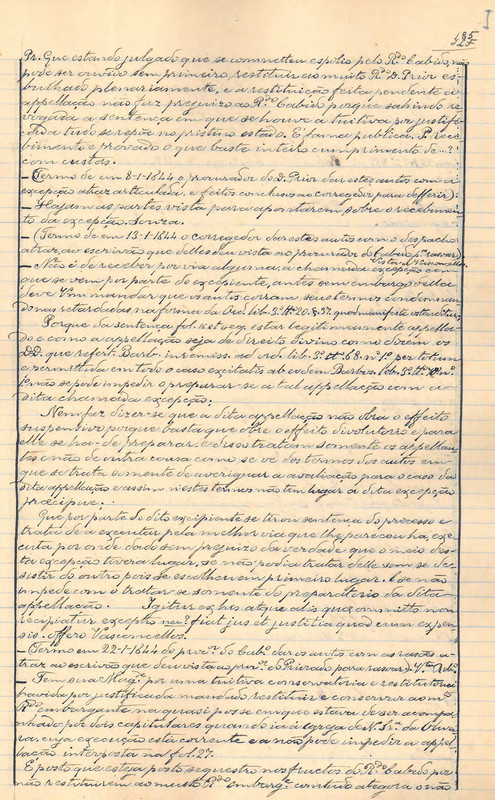 485
Pr. Que estando julgado que se commetteu espolio pelo R.do Cabido, não
pode ser ouvido sem primeiro restituir ao muito R.do D. Prior es-
bulhado plenariamente, e a restituição feita pendente a
appellação não faz prejuizo ao R.do Cabido porque sahindo re-
vogada a sentença em que se houve a tuitiva por justifi-
cada tudo se repõe no pristino estado. E fama publica. P. rece-
bimento e provado o que baste inteiro cumprimento de ...?
com custas.
– (Termo de em 8-1-1844 o procurador do D. Prior dar estes autos com a
excepção atraz articulada, e feitos conclusos ao corregedor para defferir):
– Hajam as partes vista para apontarem sobre o recebimen-
to da excepção. Souza.
– (Termo de em 13-1-1844 o corregedor dar estes autos com o despacho
atraz, ao escrivão que delles deu vista ao procurador do Cabido p.a rasoar).
Vista d. Vasconcellos.
– Não é de receber por via alguma a chamada excepção com
que se vem por parte do excipiente, antes sem embargo d'ella
deve V.m mandar que os autos corram seus termos condemnan-
do nas retardadas na forma da Ord. lib. 3.º tt.º 20. § 37.
Porque da sentença fol. et seg. estar legitimamente appella-
do e como a appellação seja de direito divino como dizem os
DD. que refert. Barb. in remiss. ad ord. lib. 3.º tt.º 68. n.º 1.º per totum
e permittida em todo o caso excitatis ab eodem Barbos. lib. 3.º tt.º
não se pode impedir o preparar-se a tal appellação com a
dita chamada excepção:
Nem faz dizer-se que a dita appellação não obra o effeito
suspensivo porque basta que obre o effeito divolutorio e para
elle se ha-de preparar e disso tratam somente os appellan-
tes e não de outra cousa como se vê dos termos dos autos em
que se trata somente de averiguar a avaliação para o caso da
dita appellação e assim nestes termos não tem lugar a dita excepção
præcipue.
Que por parte do dito excipiente se tirou sentença do processo e
trata de a executar pela melhor via que lhe pareceu ha, exe-
cuta por onde dado sem prejuizo da verdade que o meio des-
ta excepção tivera lugar, se não podia tratar delle sem se de-
sistir do outro pois se escolheu em primeiro lugar. E se não
impede com o tratar-se somente do preparatorio da dita
appellação. Igitur ex his atque aliis quæ committo non
recipiatur exceptio fiat jus et justitia quod cum expen-
sis. Offero Vasconcellos.
– (Termo em 22-1-1844 do proc.or do Cab.do dar os autos com as rasões a-
traz ao escrivão que deu vista ao pr.or do Priorado para rasoar).
– Tem sua Mag.e por uma tuitiva conservatoria e restitutoria
havida por justificada mandado restituir e conservar ao m.
R.do embargante na quasi posse em que estava de ser acompa-
nhado por dois capitulares quando ia á igreja de N. Sr.a da Olivei-
ra, cuja execução está corrente e a não pode impedir a appel-
lação interposta na fol. 27.
E posto que esteja posto sequestro nos fructos do R.do Cabido por
não restituirem ao muito R.do Embarg.e comtudo allegara o não